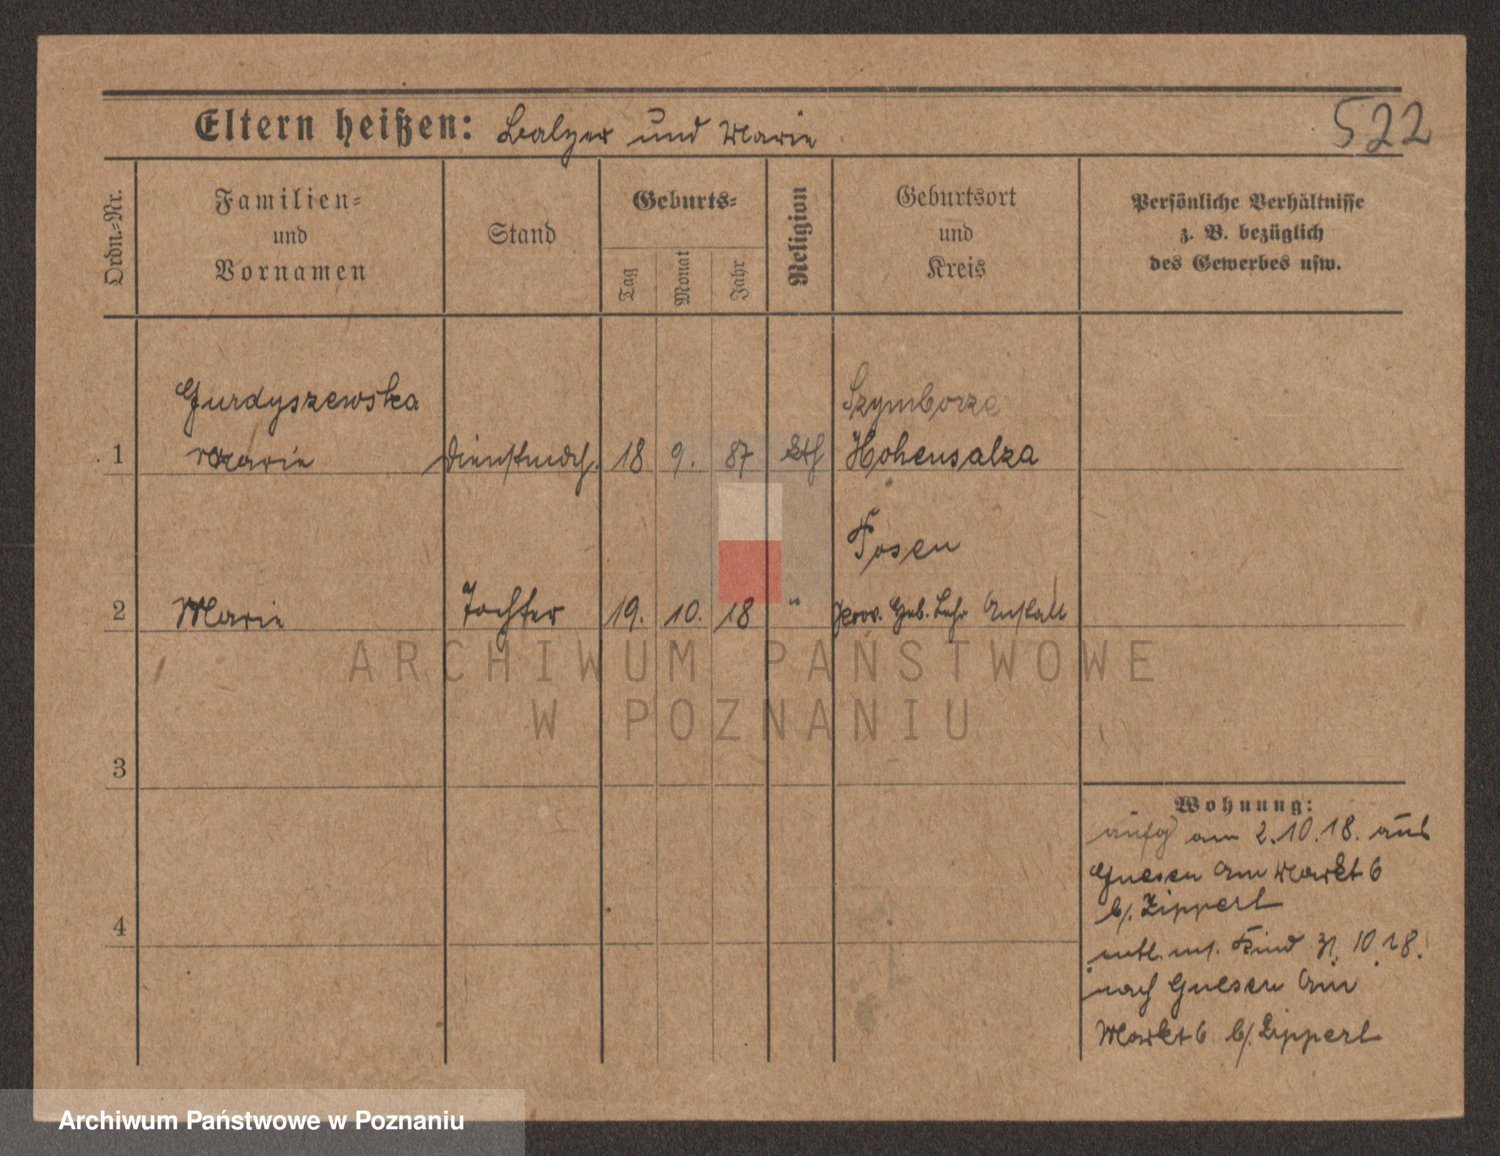 Eltern heißen: Balzer und Marie
522
Ordn.-Nr.
Familien-
und
Vornamen
Stand
Geburts-
Tag
Monat
Jahr
Religion
Geburtsort
und
Kreis
Persönliche Verhältnisse
z. B. bezüglich
des Gewerbes usw.
Gurdyszewska
Szymborze
1 Marie Dienstmdch. 18 9. 87 kth Hohensalza
Posen
2 Marie Tochter 19. 10. 18 " Prov. Heb. Lehr Anstalt
ARCHIWUM PAŃSTWOWE
W POZNANIU
3
Wohnung:
aufg am 2.10.18. aus
Gnesen Am Markt 6
b/. Zippert
4
entl. m. Kind 31.10.18.
nach Gnesen Am
Markt 6 b/. Zippert
Archiwum Państwowe w Poznaniu